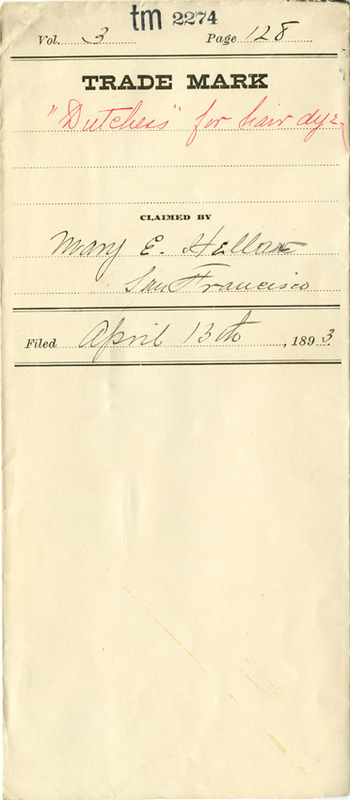 tm 2274
Vol. 3 Page 128
TRADE MARK
"Dutchess" for hair dye
CLAIMED BY
Mary E.
San Francisco
Filed April 13th, 1893